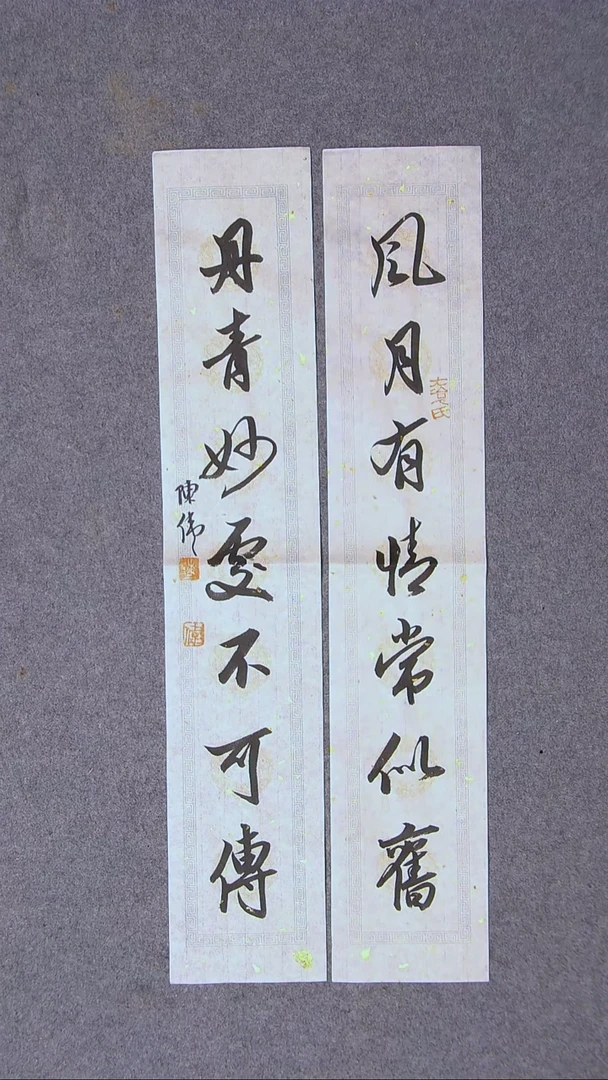 風月有情常似舊
丹青妙處不可傳
陳偉